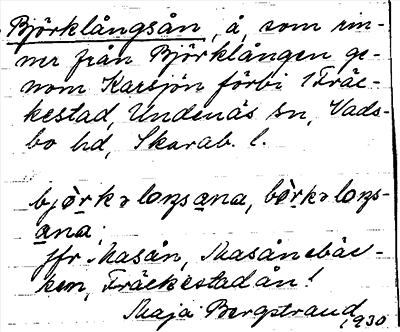 Björklångsån, å, som rin-
ner från Björklången ge-
nom Karsjön förbi 1 Fräc-
kestad, Undenäs sn, Vads-
bo hd, Skarab. l.
björkə loŋsana, börkə loŋs-
ana;
jfr Masån, Masånebäc-
ken, Fräckestadån!
Maja Bergstrand 1930